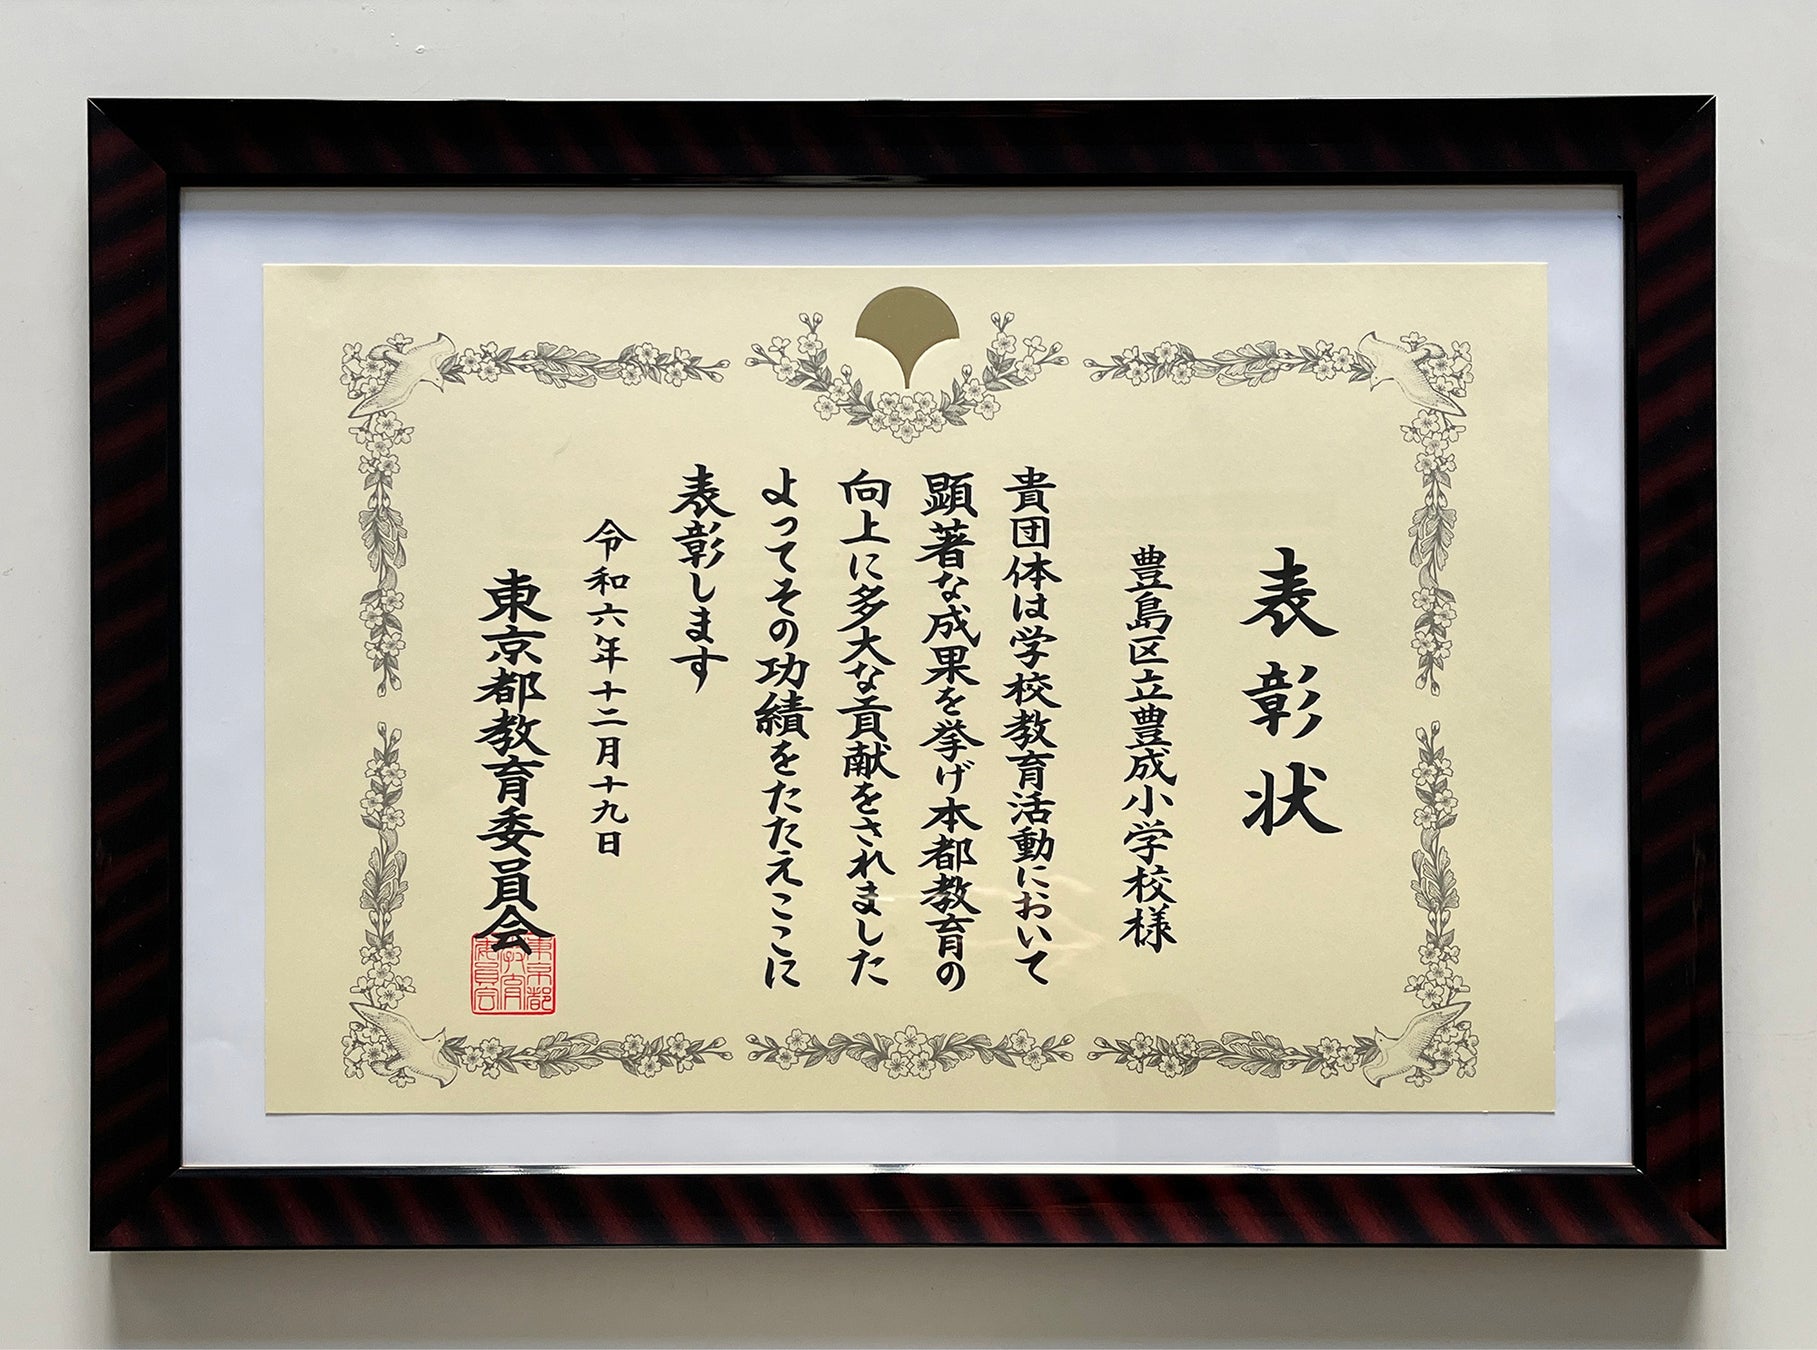 表彰状
豊島区立豊成小学校様
貴団体は学校教育活動において
顕著な成果を挙げ本都教育の
向上に多大な貢献をされました
よってその功績をたたえここに
表彰します
令和六年十二月十九日
東京都教育委員会
東京都
教育
委員会